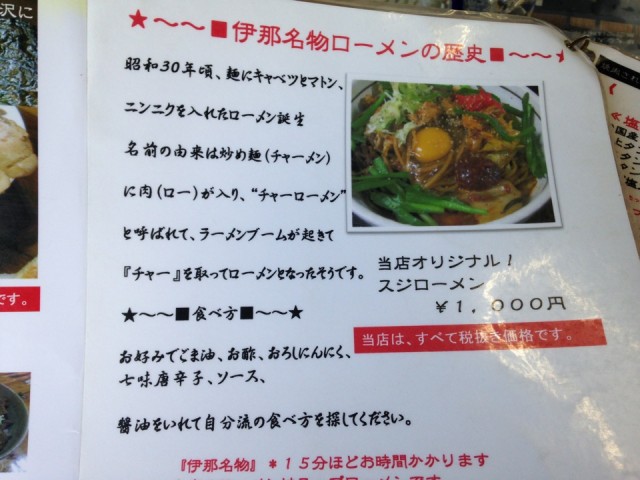 沢に
★～～■伊那名物ローメンの歴史■～～★
昭和30年頃、麺にキャベツとマトン、
ニンニクを入れたローメン誕生
名前の由来は炒め麺（チャーメン）
に肉（ロー）が入り、“チャーローメン”
と呼ばれて、ラーメンブームが起きて
『チャー』を取ってローメンとなったそうです。
★～～■食べ方■～～★
お好みでごま油、お酢、おろしにんにく、
七味唐辛子、ソース、
醬油をいれて自分流の食べ方を探してください。
『伊那名物』＊15分ほどお時間かかります
当店オリジナル！
スジローメン
￥1,000円
当店は、すべて税抜き価格です。
です。
国産